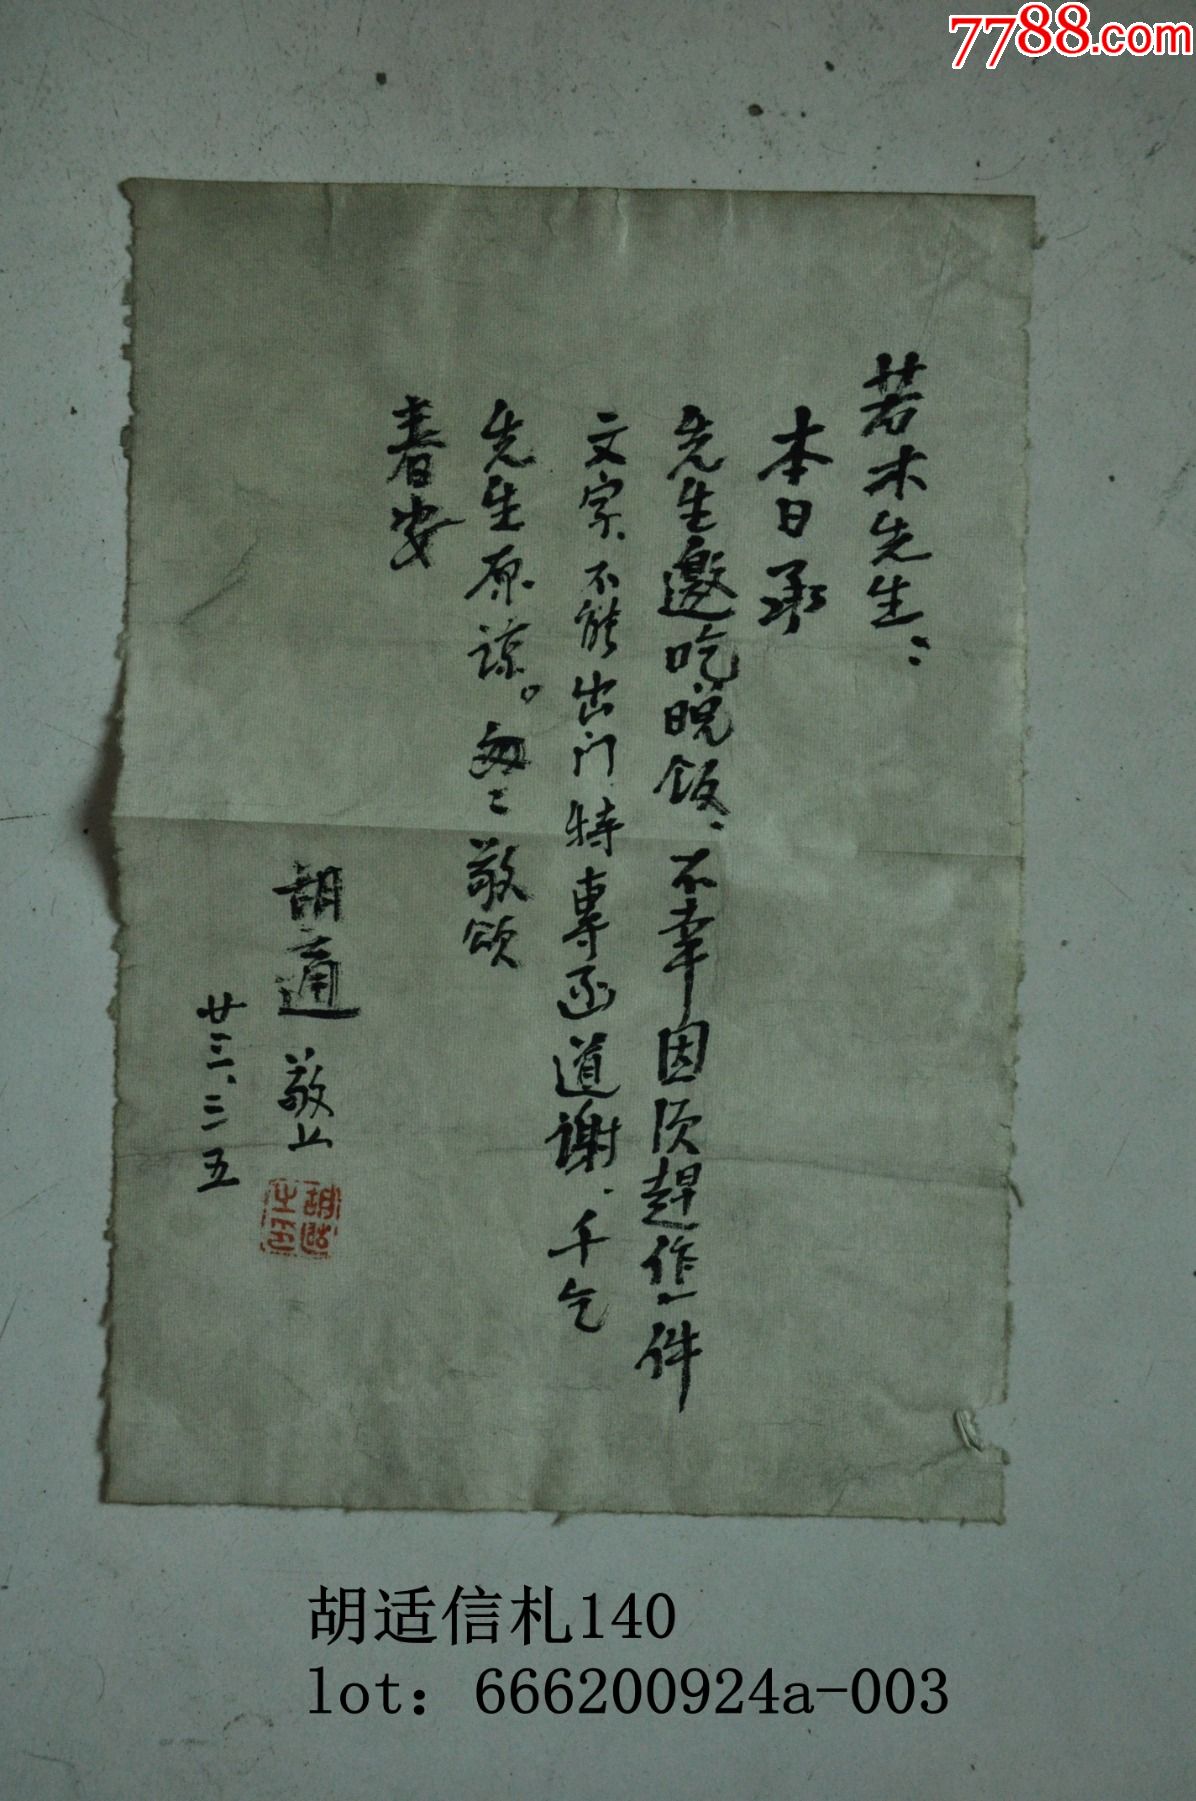 7788.com
若木先生：
本日承
先生邀吃晚饭、不幸因须趕作一件
文字、不能出门特專函道謝、千乞
先生原諒。匆匆敬頌
春安
胡適 敬上
廿三、三 五
胡适信札140
lot: 666200924a-003